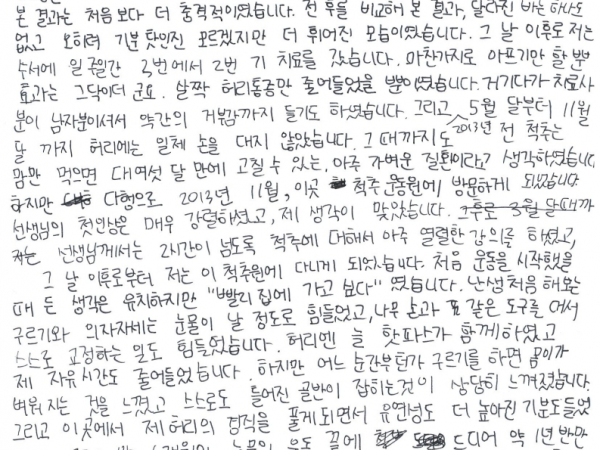 본 결과는 처음보다 더 충격적이었습니다. 전 후를 비교해 본 결과, 달라진 바는 하나도
없고 오히려 기분 탓인진 모르겠지만 더 휘어진 모습이였습니다. 그 날 이후로 저는
수서에 일주일간 3번에서 2번 기 치료를 갔습니다. 마찬가지로 아프기만 할 뿐
효과는 그닥이더 군요. 살짝 허리통증만 줄어들었을 뿐이였습니다. 거기다가 치료사
분이 남자분이셔서 약간의 거부감까지 들기도 하였습니다. 그리고 5월 달부터 11월
달 까지 허리에는 일체 손을 대지 않았습니다. 그 때까지도 2013년 전 척추는
맘만 먹으면 대여섯 달 만에 고칠 수 있는, 아주 가벼운 질환이라고 생각하였습니다
하지만 다행으로 2013년 11월, 이곳 척추운동원에 방문하게 되었습니다
선생님의 첫인상은 매우 강렬하셨고, 제 생각이 맞았습니다. 그후로 3월 달때까
선생님께서는 2시간이 넘도록 척추에 대해서 아주 열렬한 강의를 하셨고,
그 날 이후로부터 저는 이 척추원에 다니게 되었습니다. 처음 운동을 시작했을
때 든 생각은 유치하지만 "빨리 집에 가고 싶다" 였습니다. 난생처음 해보는
구르기와 의자자세는 눈물이 날 정도로 힘들었고, 나무 같은 도구를 대서
스스로 교정하는 일도 힘들었습니다. 허리엔 늘 핫파스가 함께하였고
제 자유시간도 줄어들었습니다. 하지만 어느 순간부턴가 구르기를 하면 몸이가
벼워 지는 것을 느꼈고 스스로도 틀어진 골반이 잡히는것이 상당히 느껴졌습니다.
그리고 이곳에서 제 허리의 경직을 풀게 되면서 유연성도 더 높아진 기분도들었
끝에 드디어 약 1년 반만